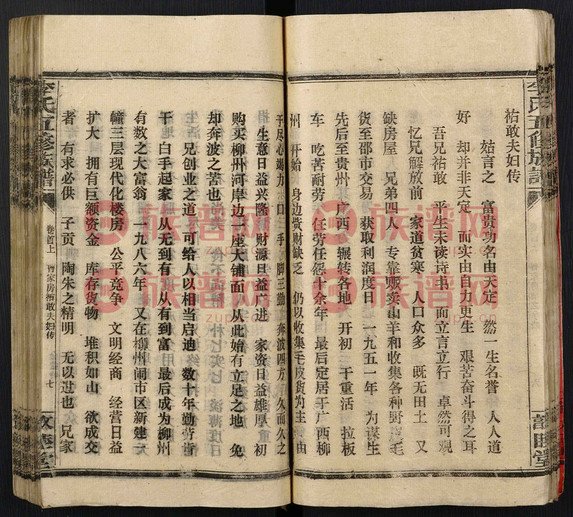 李氏五修族譜
祐敢夫妇传
姑言之　富貴功名由天定　然一生名誉　人人道
好　却並非天定　而实由自力更生　艰苦奋斗得之耳
吾兄祐敢　平生未读诗书　而立言立行　卓然可观
忆兄解放前　家道贫寒　人口众多　既无田土　又
缺房屋　兄弟四人　专靠贩卖山羊和收集各种野兽毛
货至邵市交易　获取利润度日　一九五一年　为谋生
先后至贵州　广西　辗转各地　开初　干重活　拉板
车　吃苦耐劳　任劳任怨十余年　最后定居于广西柳
州　开始　身边货财缺乏　仍以收集毛皮货为主　由
于尽心竭力　口三手　脚三勤　奔波四方　久而久之
生意日益兴隆　财源日益广进　家资日益雄厚　初
购买柳州河岸边一座大铺面　从此始有立足之地　免
却奔波之苦也
兄创业之道　可给人以相当启迪　数十年勤劳苦
干　白手起家　从无到有　从有到富　最后成为柳州
有数之大富翁　一九八六年　又在柳州闹市区新建一
幢三层现代化楼房　公平竞争　文明经商　经营日益
扩大　拥有巨额资金　库存货物　堆积如山　欲成交
者　有求必供　子贡　陶朱之精明　无以过也　兄家
李氏五修族譜
卷首上　曾家房祐敢夫妇传
七
敦睦堂
族谱网